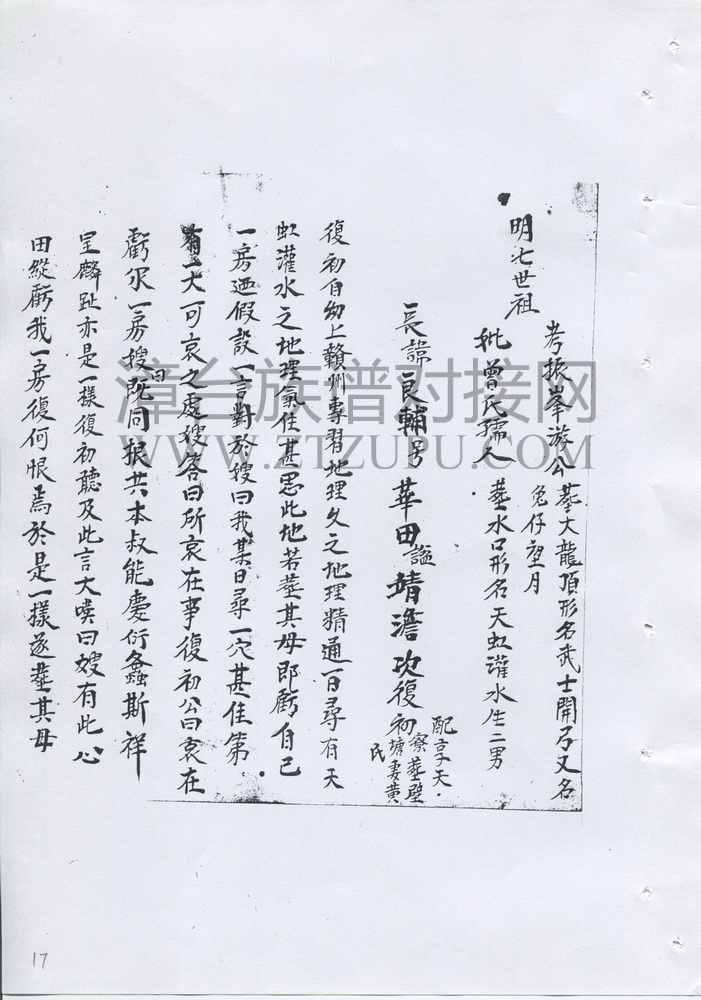 明七世祖
考振峯游公葬大龍頂形名武士開弓又名
兔仔望月
妣曾氏孺人葬水口形名天虹灌水生二男
長諱良輔号華田謚靖澹次復初配享天
寮葬壁
塘妻黄
氏
復初自幼上贛州專習地理久之地理精通一日尋有天
虹灌水之地理氣住甚思此地若葬其母即虧自己
一房迺假設一言對於嫂曰我某日尋一穴甚佳第
有一大可哀之處嫂答曰所哀在事復初公曰哀在
虧尔一房嫂曰既同根共本叔能慶衍螽斯祥
呈麟趾亦是一樣復初聽及此言大嘆曰嫂有此心
田縱虧我一房復何恨焉於是一樣遂葬其母
漳台族谱对接网
WWW.ZTZUPU.COM
17